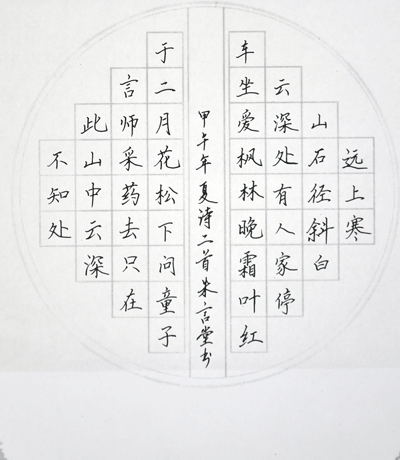 远上寒
山石径斜白
云深处有人家停
车坐爱枫林晚霜叶红
甲午年夏诗二首朱言堂书
于二月花松下问童子
言师采药去只在
此山中云深
不知处